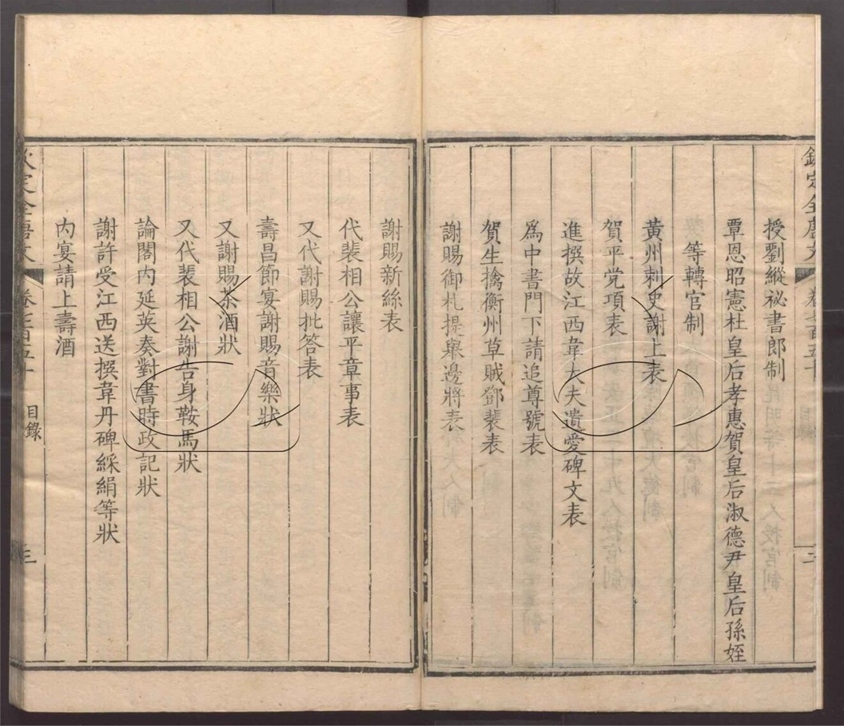 授劉縱祕書郎制
覃恩昭憲杜皇后孝惠賀皇后淑德尹皇后孫姪
等轉官制
黃州刺史謝上表
賀平党項表
進撰故江西韋大夫遺愛碑文表
為中書門下請追尊號表
賀生擒衡州草賊鄧裴表
謝賜御札提舉邊將表
謝賜新絲表
代裴相公讓平章事表
又代謝賜批答表
壽昌節宴謝賜音樂狀
又謝賜茶酒狀
又代裴相公謝告身鞍馬狀
論閣內延英奏對書時政記狀
謝許受江西送撰韋丹碑綵絹等狀
內宴請上壽酒
欽定全唐文
卷七百五十
目錄
三